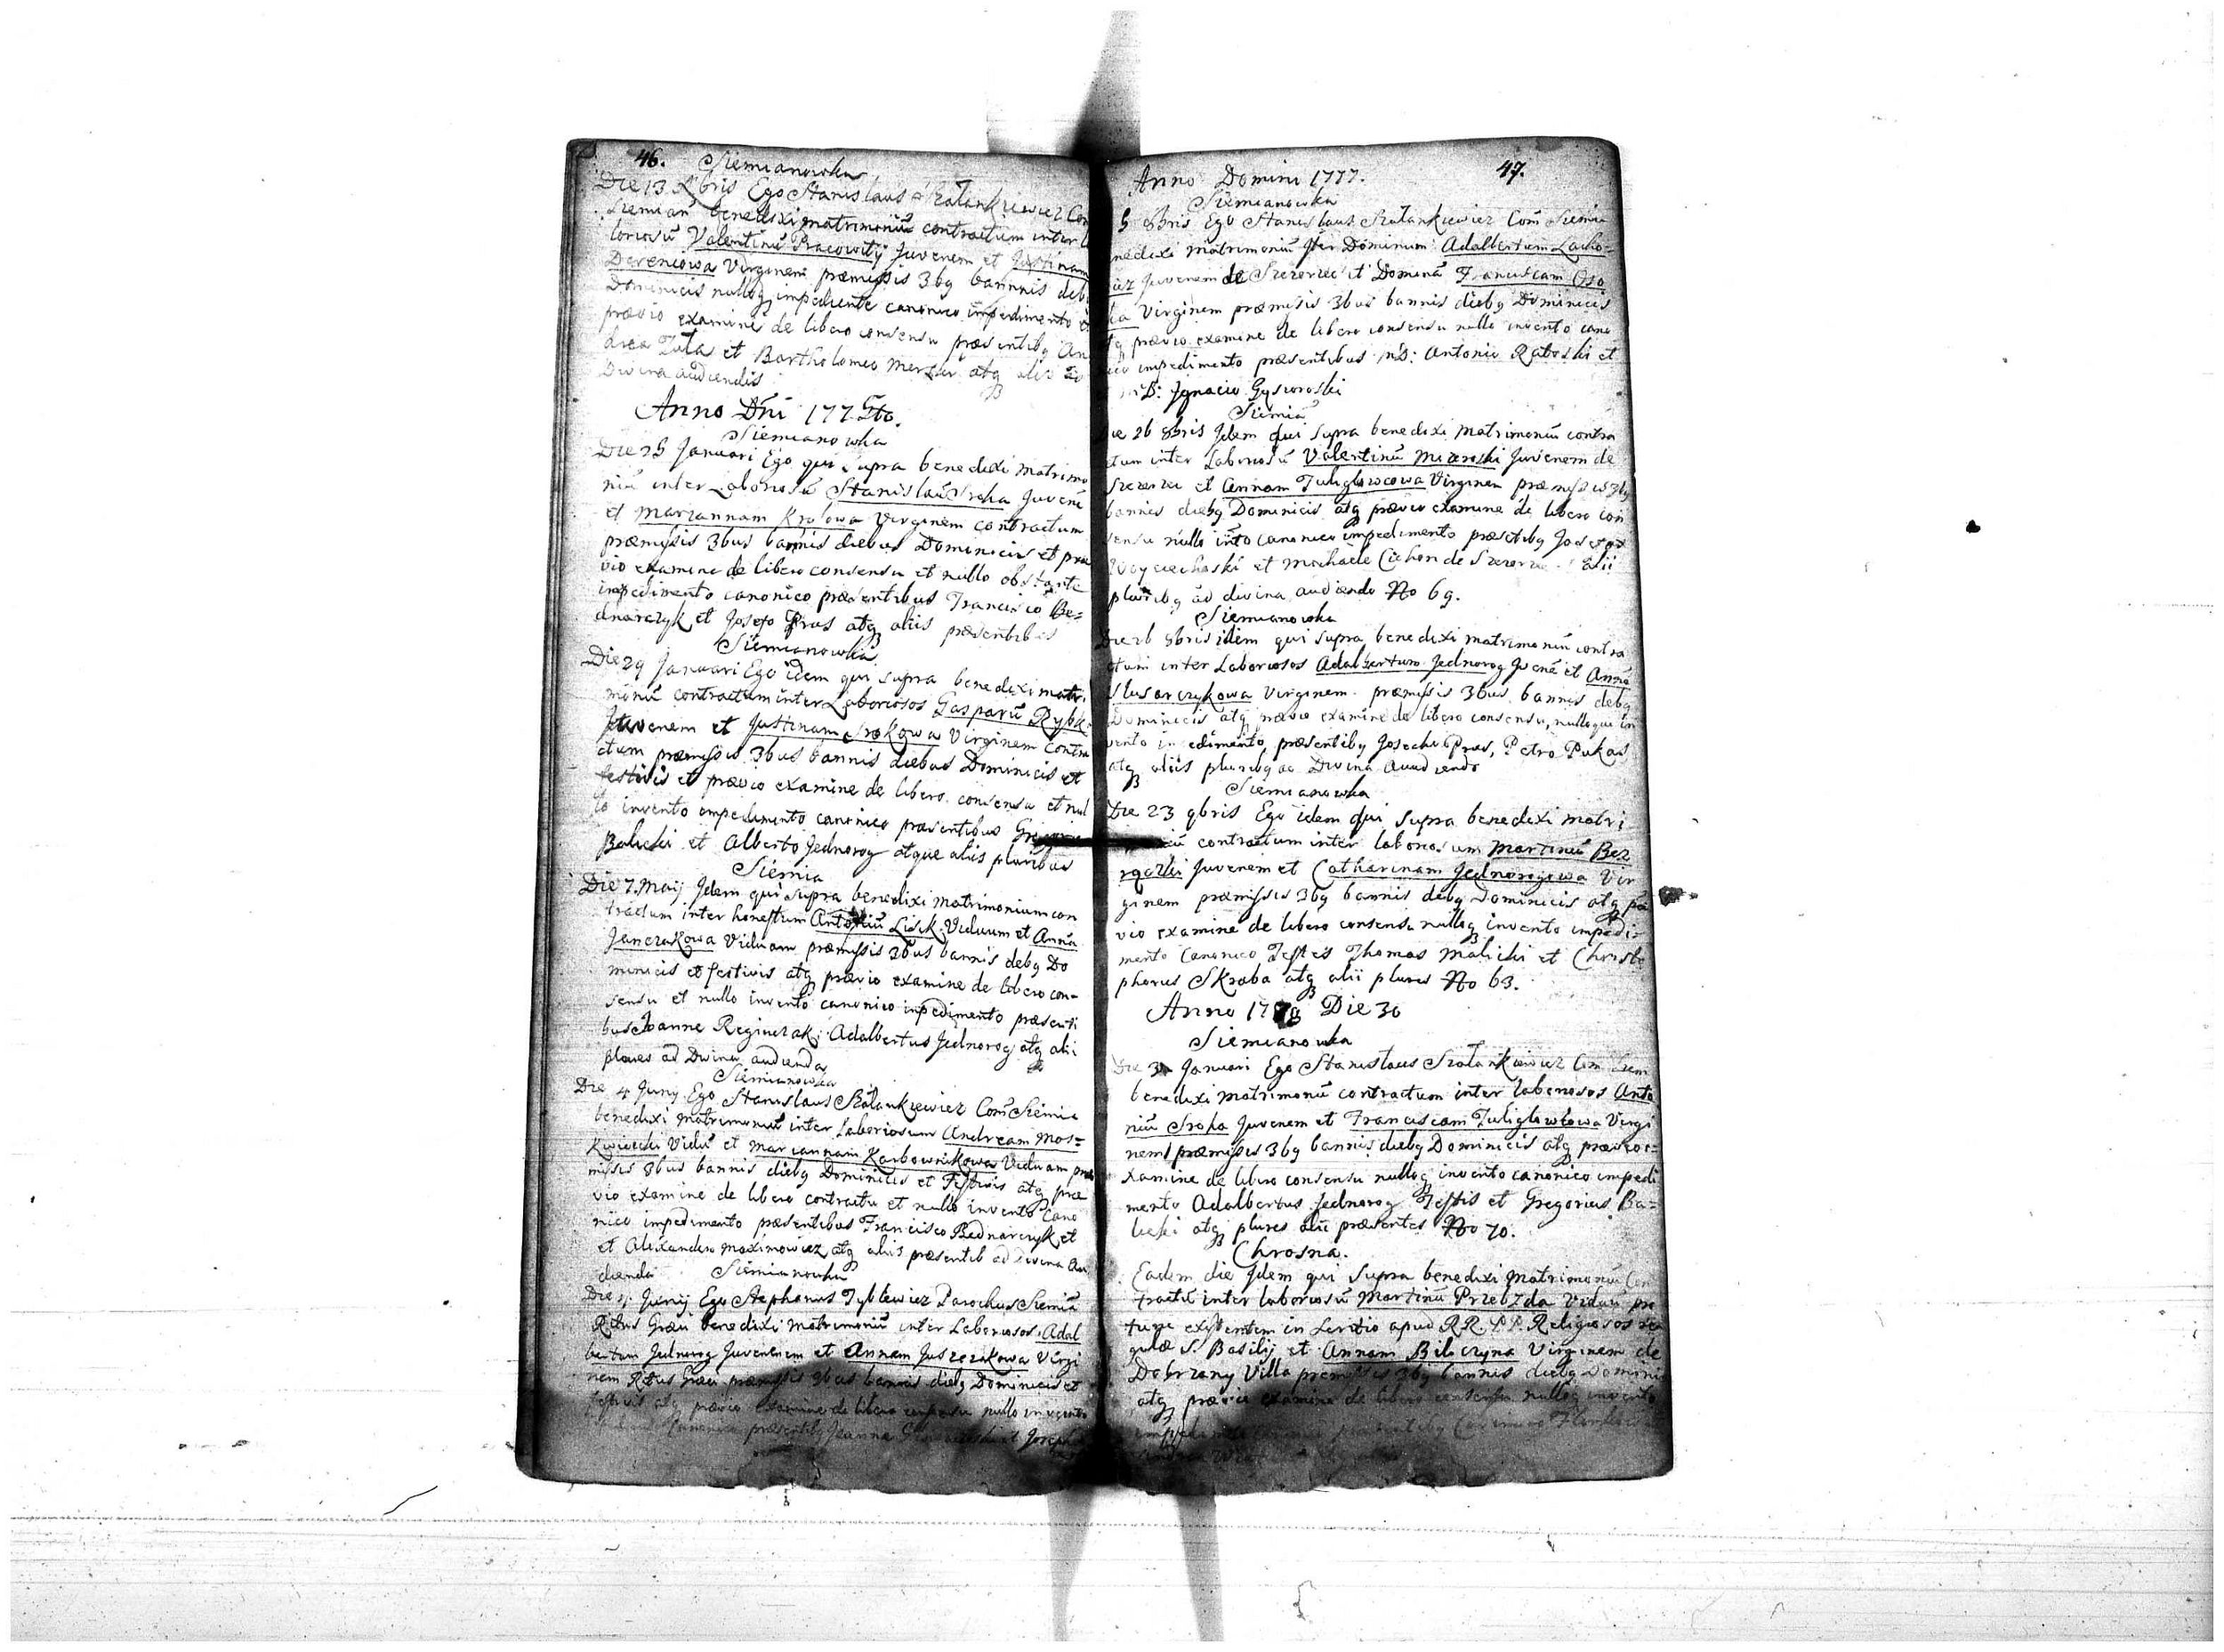 46.
Siemianowka
Die 13 Xbris Ego Stanislaus Szałankiewicz Com
Siemian benedixi matrimoniū contractum inter
loriosū Valentinū Pracowity Juvenem et Justinam
Derencowa Virginem præmissis 3bq bannnis deb
Dominicis nulloq impediente canonico impedimento
prævio examine de libero consensu præsentibq An
drea Tuła et Bartholomeo atq aliis
Divina audiendis
Anno Dn̄i 177 6to.
Siemianowka
Die 25 Januari Ego qui supra benedixi matrimo
niū inter Laboriosū Stanislaū Sroka Juvenē
et Mariannam Krolowa Virginem contractum
præmissis 3bus bannis diebus Dominicis et præ
vio examine de libero consensu et nullo obstante
impedimento canonico præsentibus Francisco Be=
dnarczyk et Josepo Prus atq aliis præsentibus
Siemianowka
Die 29 Januari Ego idem qui supra benedixi matri
moniū contractum inter Laboriosos Gasparū Rybk
Juvenem et Justinam Srokowa Virginem Contra
ctum præmissis 3bus bannis diebus Dominicis et
festivis et prævio examine de libero consensu et nul
lo invento impedimento canonico præsentibus Gregorio
Balicki et Alberto Jednorog atque aliis pluribus
Siemia
Die 7. Maij Idem qui supra benedixi matrimonium con
tractum inter honestum Antoniū Lisik Viduum et Annā
Janczakowa Viduam præmissis 3bus bannis debq Do
minicis et festivis atq prævio examine de libero con-
sensu et nullo invento canonico inpedimento præsenti
bus Joanne Reginczak: Adalbertus Jednorog atq alii
plures ad Divina audienda
Siemianowka
Die 4 Junij Ego Stanislaus Szałankiewicz Com Siemia
benedixi matrimoniū inter Laboriosum Andream Mos=
Kwiecki Viduū et Mariannam Karbownikowa Viduam præ
missis 3bus bannis diebq Dominicis et Festivis atq præ
vio examine de libero contractu et nullo invento Cano
nico impedimento præsentibus Francisco Bednarczyk et
et Alixandro Maximowicz atq aliis præsentib ad Divina Au
dienda
Siemianowka
Die Junij Ego Stephanus Tyblewicz Parochus Siemiā
Ritus Græci benedixi Matrimoniū inter Laboriosos Adal
bertum Jednorog Juvenem et Annam Juszczakowa Virgi
nem Ritus Græci præmissis 3bus bannis diebq Dominicis et
festivis atq prævio examine de libero consensu nullo invento
præsentibq Joanne et Josepho
47.
Anno Domini 1777.
Siemianowka
5 8bris Ego Stanislaus Szałankiewicz Com Siemia
nedixi matrimoniū Jter Dominum Adalbertum Lacho=
icz Juvenem de Szczerzec et Dominā Franciscam Oso
ka Virginem præmissis 3bus bannis diebq Dominicis
tq prævio examine de libero consensu nullo invento cano
nico impedimento præsentibus Antonio Ratoski et
D: Ignacio Gąsioroski
Siemia
Die 26 8bris Idem qui supra benedixi Matrimoniū contra
ctum inter Laboriosū Valentinū Mizeroski Juvenem de
Szczerzec et Annam Tuligłowcowa Virginem præmissis 3bq
bannis diebq Dominicis atq prævio examine de libero con
sensu nullo into canonico impedimento præsetibq Josepo
Woyciechoski et Michaele Cichon de Szczerzec alii
pluribq ad divina audienda No 69.
Siemianowka
Die 26 8bris idem qui supra benedixi matrimoniū contra
ctum inter Laboriosos Adalbertum Jednorog Juvenē et Annā
Slusarczykowa Virginem præmissis 3bus bannis debq
Dominicis atq prævio examine de libero consensu, nulloque in
vento in edimento, præsentibq Josepho Prus, Petro Pukas
atq aliis pluribq ad Divina Auudiendo
Siemianowka
Die 23 9bris Ego idem qui supra benedixi matri
moniū contractum inter laboriosum Martinū Bez
Juvenem et Catharinam Jednorogowa Vir
ginem præmissis 3bq bannis debq Dominicis atq præ
vio examine de libero consensu nulloq invento impedi=
mento Canonico Testes Thomas Malicki et Christo
phorus Skraba atq alii plures No 63.
Anno 1778 Die 30
Siemianowka
Die 30 Januari Ego Stanislaus Szałankiewicz Com Siem
benedixi matrimoniū contractum inter laboriosos Anto
niū Sroka Juvenem et Franciscam Tuligłowkowa Virgi
nem præmissis 3bq bannis diebq Dominicis atq prævio e=
xamine de libero consensu nulloq invento canonico impedi
mento Adalbertus Jednorog Testis et Gregorius Ba=
licki atq plures alii præsentes No 70.
Chrosna.
Eadem die Idem qui supra benedixi Matrimoniū Con
tractū inter laboriosū Martinū Przebzda Viduū pro
tunc existentem in Servitio apud RR. PP. Religiosos re
gulæ S. Basilij et Annam Biloczyna Virginem de
Dobrzany Villa premissis 3bq bannis diebq Domini
atq prævio examine de libero consensu nulloq invento
impedimento
Andrea